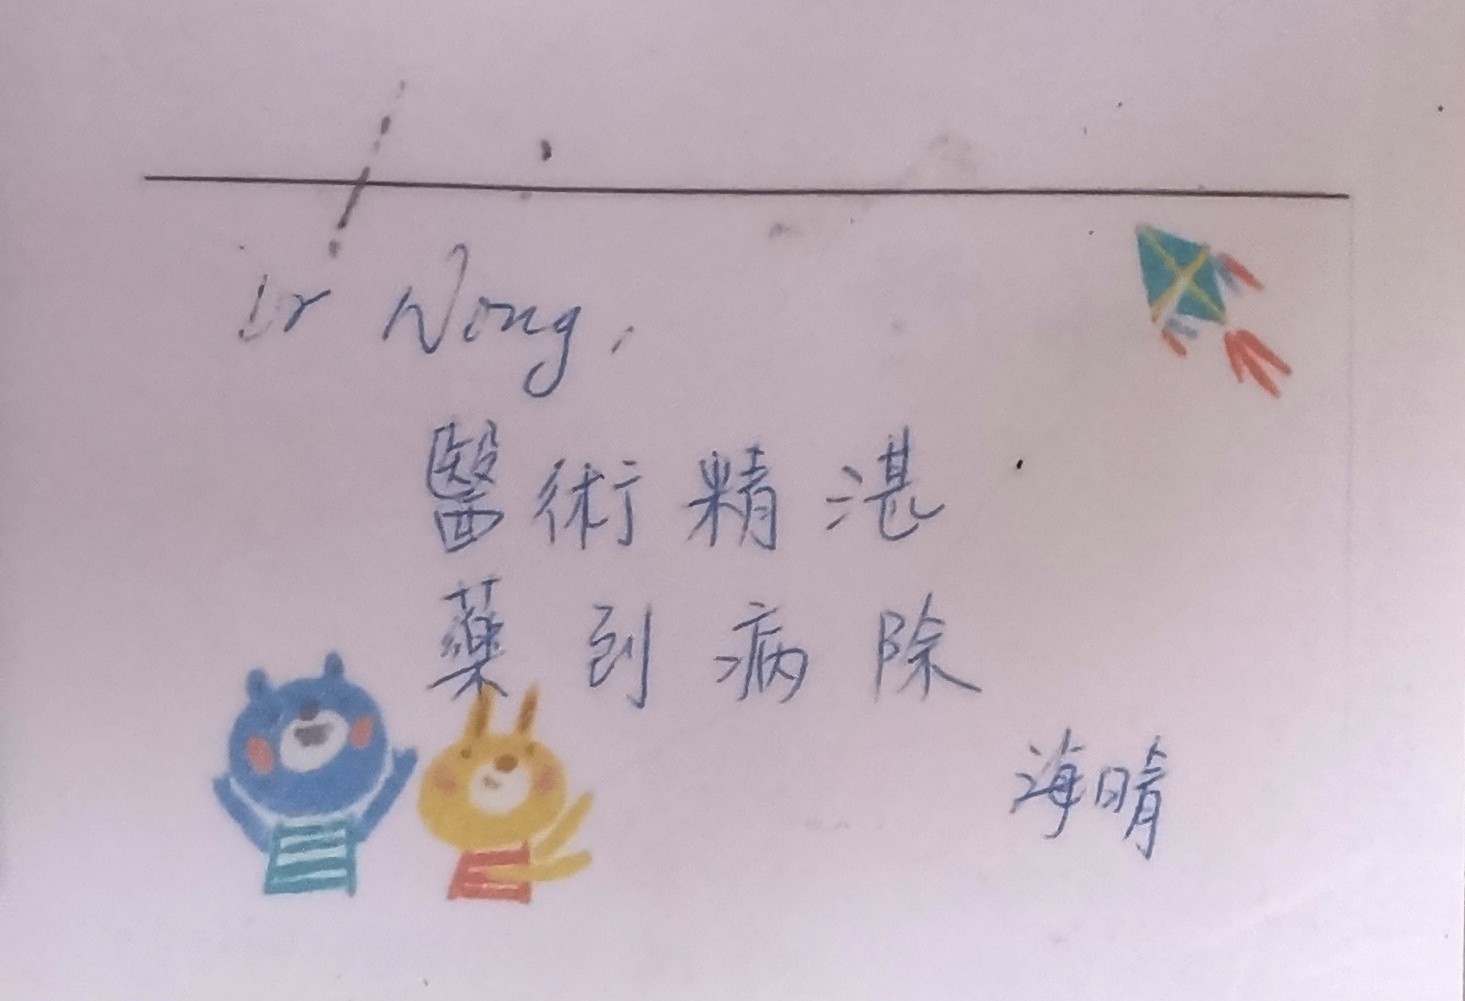 Dr Wong,
醫術精湛
藥到病除
海晴